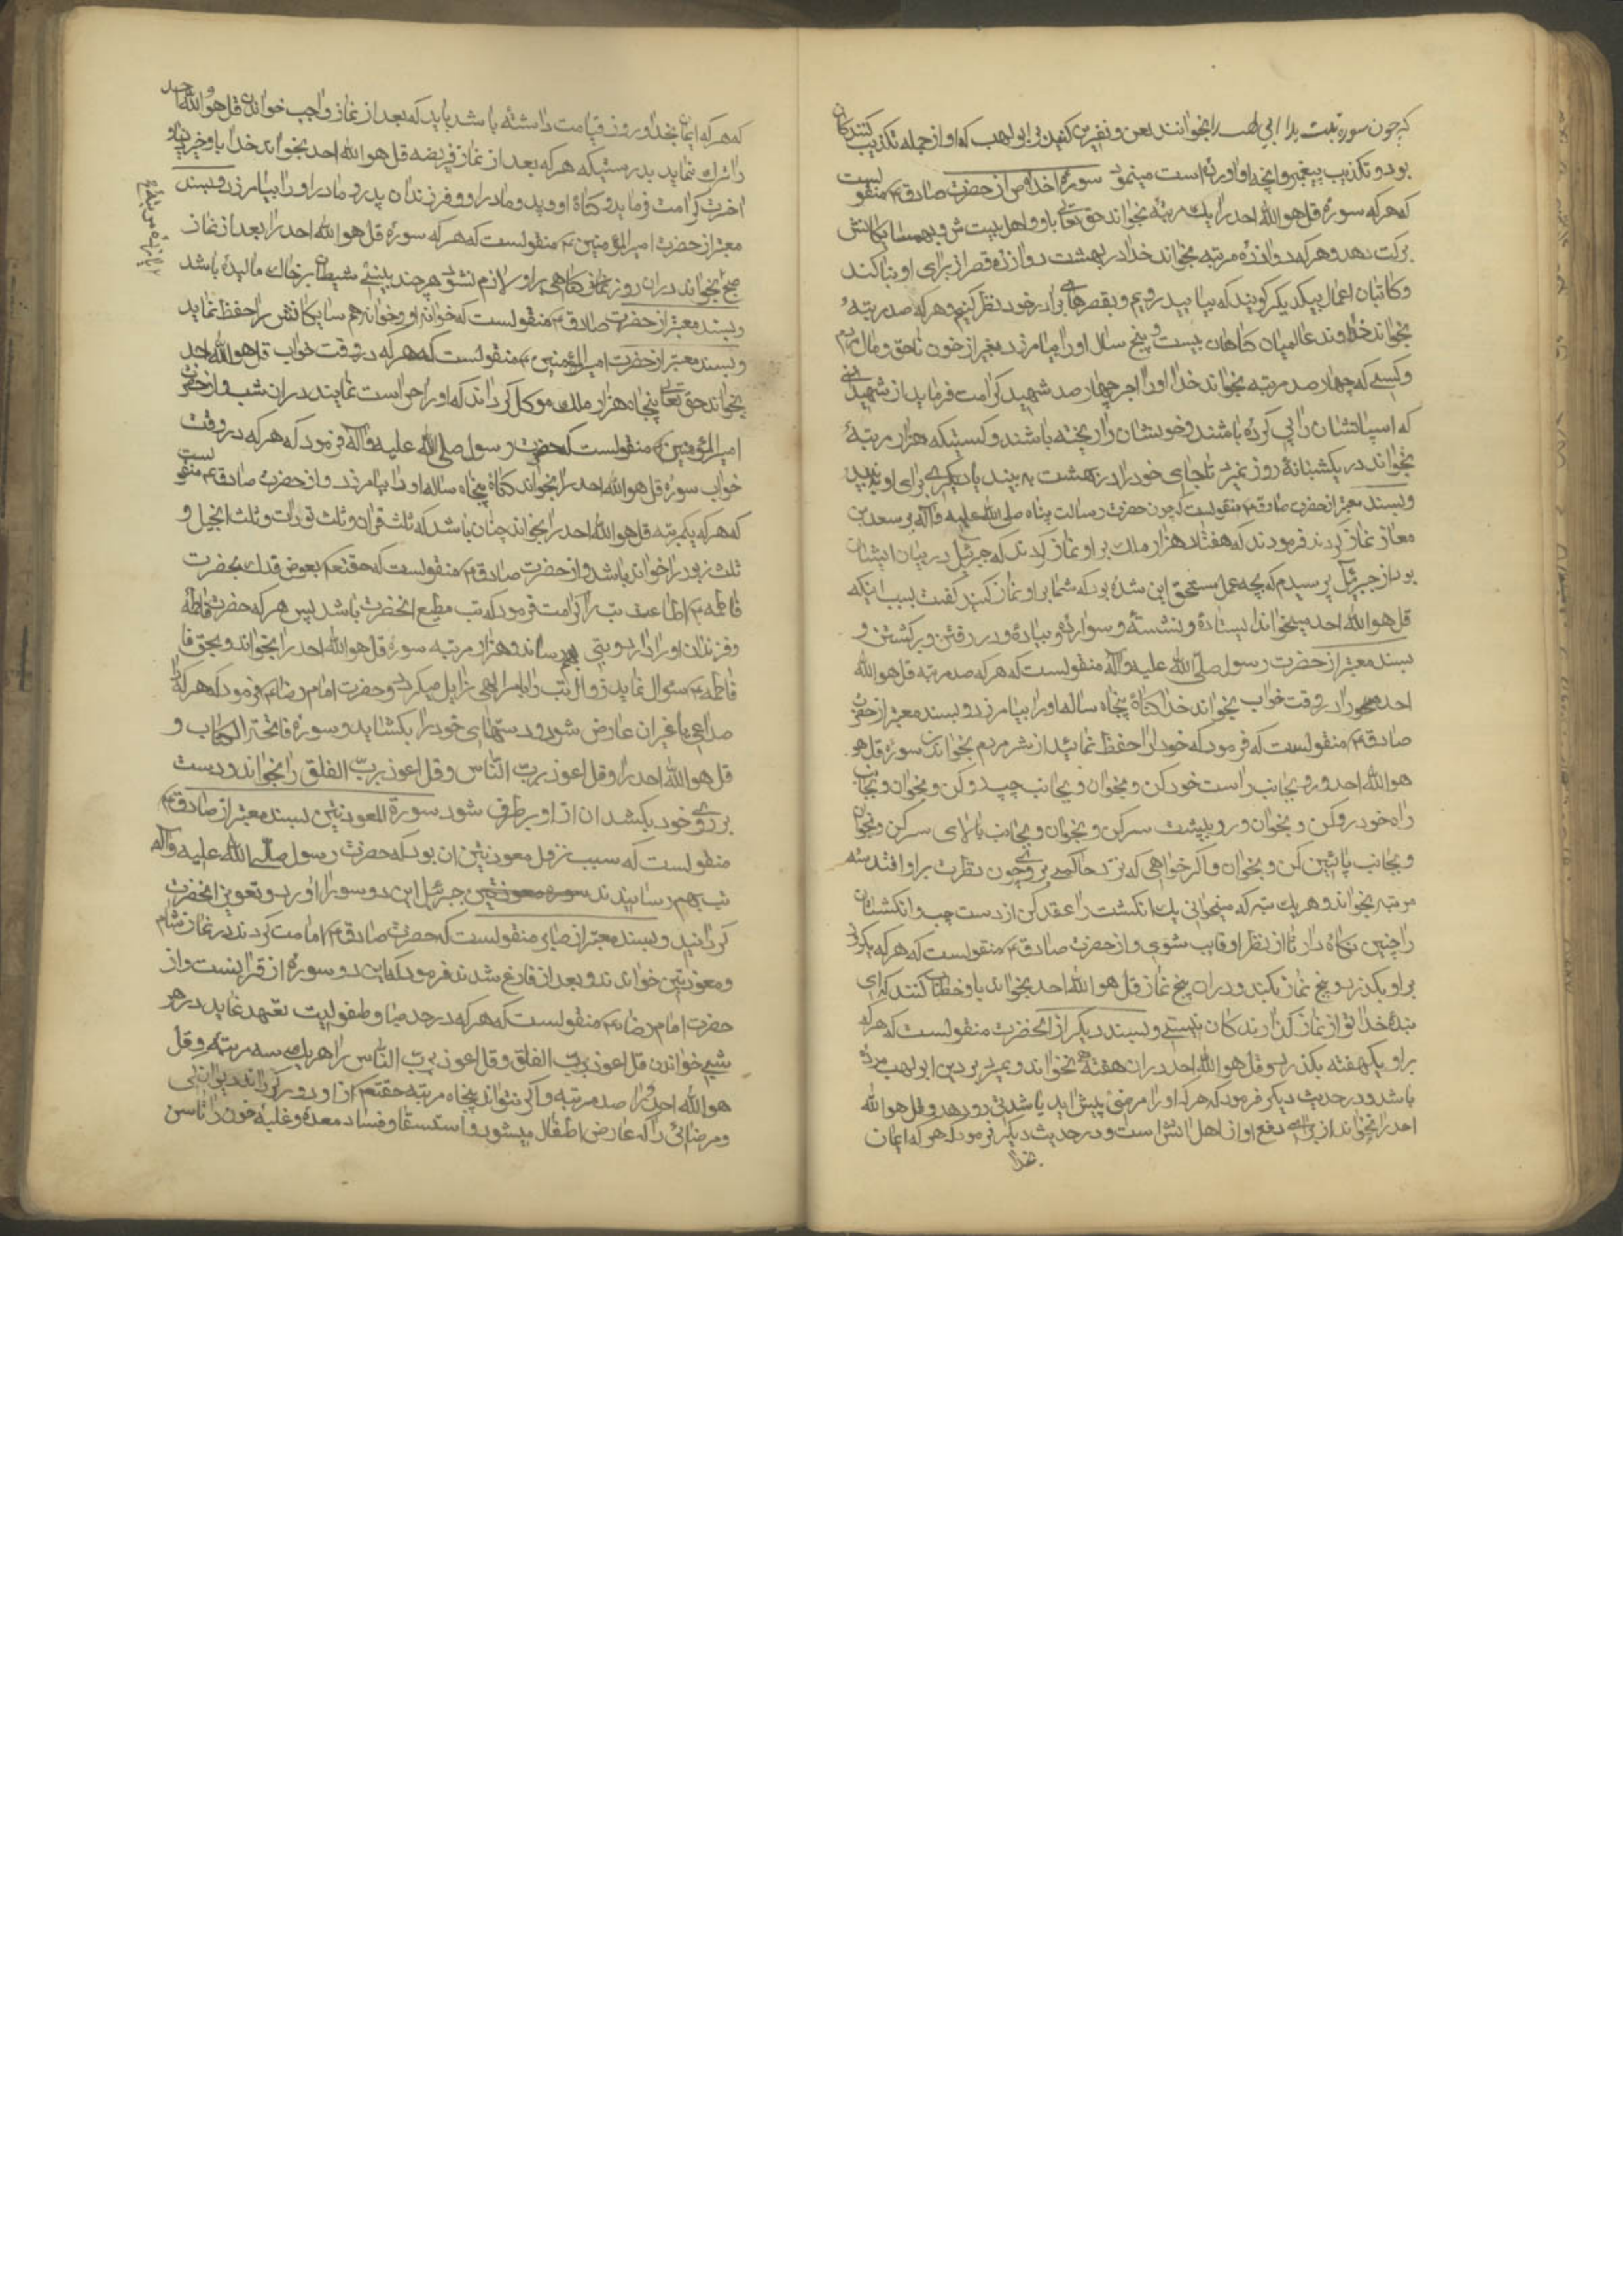 که چون سوره تبت یدا ابی لهب را بخوانند لعن و نفرین کنید بر ابی لهب که او از جمله تکذیب کنندگان
بود و تکذیب پیغمبر و آنچه او آورده است مینمود سورهٔ اخلاص از حضرت صادق ع منقولست
که هر که سورهٔ قل هو الله احد را یک مرتبه بخواند حق تعالی باو و اهل بیتش و بهمسایکانش
برکت دهد و هر که دوازده مرتبه بخواند خدا در بهشت دوازده قصر از برای او بنا کند
و کاتبان اعمال بیکدیکر کویند که بیایید رویم و بقصرهای برادر خود نظر کنیم و هر که صد مرتبهٔ
بخواند خداوند عالمیان کناهان بیست و پنج سال او را بیامرزد بغیر از خون ناحق و مال مردم
و کسی که چهار صد مرتبه بخواند خدا او را اجر چهار صد شهید کرامت فرماید از شهیدانی
که اسپانشان را پی کرده باشند و خونشان را ریخته باشند و کسیکه هزار مرتبهٔ
بخواند در یکشبانهٔ روز نمیرد تا جای خود را در بهشت به بیند یا دیکری برای او به بیند
و بسند معتبر از حضرت صادق ع منقولست که چون حضرت رسالت پناه صلی الله علیه و آله بر سعد بن
معاذ نماز کردند فرمودند که هفتاد هزار ملک بر او نماز کردند که جبرئیل در میان ایشان
بود از جبرئیل پرسیدم که بچه عمل مستحق این شده بود که شما بر او نماز کنید کفت بسبب اینکه
قل هو الله احد میخواند ایستاده و نشسته و سواره و پیاده و در رفتن و برکشتن و
بسند معتبر از حضرت رسول صلی الله علیه و آله منقولست که هر که صد مرتبه قل هو الله
احد را در وقت خواب بخواند خدا کناه پنجاه ساله او را بیامرزد و بسند معتبر از حضرت
صادق ع منقولست که فرمود که خود را حفظ نمائید از شر مردم بخواندن سورهٔ قل هو
هو الله احد و رو بجانب راست خود کن و بخوان و بجانب چپ رو کن و بخوان و بجانب
راه خود رو کن و بخوان و رو بپشت سر کن و بخوان و بجانب بالای سر کن و بخوان
و بجانب پائین کن و بخوان و اکر خواهی که نزد حاکمی بروی چون نظرت بر او افتد سه
مرتبه بخوان و هر یک مرتبه که میخوانی یک انکشت را عقد کن از دست چپ و انکشتان
را چنین نکاه دار تا از نظر او غایب شوی و از حضرت صادق ع منقولست که هر که یکروز
بر او بکذرد و پنج نماز بکند و در ان پنج نماز قل هو الله احد نخواند باو خطاب کنند که ای
بندهٔ خدا تو از نماز کذارند کان نیستی و بسند دیکر از آنحضرت منقولست که هر که
بر او یکهفته بکذرد و قل هو الله احد در ان هفته نخواند و بمیرد بر دین ابو لهب مرده
باشد و در حدیث دیکر فرمود که هر که او را مرضی پیش آید یا شدتی رو دهد و قل هو الله
احد را نخواند از برای دفع او از اهل آتش است و در حدیث دیکر فرمود که هر که ایمان
بخدا
که هر که ایمان بخدا و روز قیامت داشته باشد باید که بعد از نماز واجب خواندن قل هو الله احد
را ترک ننماید بدرستیکه هر که بعد از نماز فریضه قل هو الله احد بخواند خدا باو خیر دنیا و
اخرت کرامت فرماید و کناه او و پدر و مادر او و فرزندان پدر و مادر او را بیامرزد و بسند
معتبر از حضرت امیر المؤمنین ع منقولست که هر که سورهٔ قل هو الله احد را بعد از نماز
صبح بخواند در ان روز کناهی بر او لازم نشود هر چند بینی شیطان بر خاک مالیده باشد
یازده مرتبه
و بسند معتبر از حضرت صادق ع منقولست که خواننده او و خوانه هم سایکانش را حفظ نماید
و بسند معتبر از حضرت امیر المؤمنین ع منقولست که هر که در وقت خواب قل هو الله احد
بخواند حق تعالی پنجاه هزار ملک موکل کرداند که او را حراست نمایند در ان شب و از حضرت
امیر المؤمنین ع منقولست که حضرت رسول صلی الله علیه و آله فرمود که هر که در وقت
خواب سورهٔ قل هو الله احد را بخواند کناه پنجاه ساله او را بیامرزد و از حضرت صادق ع منقولست
که هر که یکمرتبه قل هو الله احد را بخواند چنان باشد که ثلث قرآن و ثلث تورات و ثلث انجیل و
ثلث زبور را خوانده باشد و از حضرت صادق ع منقولست که حقتعالی بعوض فدک بحضرت
فاطمه ع اطاعت تب را کرامت فرمود که تب مطیع انحضرت باشد پس هر که حضرت فاطمهٔ
و فرزندان او را دارد و تبی بهم رساند و هزار مرتبه سورهٔ قل هو الله احد را بخواند و بحق فا
فاطمه ع سؤال نماید زوال تب را بامر الهی زایل میکردد و حضرت امام رضا ع فرمود که هر که را
صداعی یا غیر ان عارض شود دستهای خود را بکشاید و سورهٔ فاتحة الکتاب و
قل هو الله احد را و قل اعوذ برب الناس و قل اعوذ برب الفلق را بخواند و دست
بر روی خود بکشد ان از او بر طرف شود سورة المعوذتین بسند معتبر از صادق ع
منقولست که سبب نزول معوذتین ان بود که حضرت رسول صلی الله علیه و آله
تب بهم رسانیدند سوره معوذتین جبرئیل این دو سوره را آورد و تعویذ انحضرت
کردانید و بسند معتبر از صابر منقولست که حضرت صادق ع امامت کردند در نماز شام
و معوذتین خواندند و بعد از فارغ شدند فرمود که این دو سورهٔ از قرانست و از
حضرت امام رضا ع منقولست که هر که در حد صبا و طفولیت تعهد نماید در هر
شبی خواندن قل اعوذ برب الفلق و قل اعوذ برب الناس را هر یک سه مرتبه و قل
هو الله احد را صد مرتبه و اکر نتواند پنجاه مرتبه حقتعالی از او دور کرداند
و مرضهائی را که عارض اطفال میشود و استسقا و فساد معده و غلبهٔ خون را تا سن